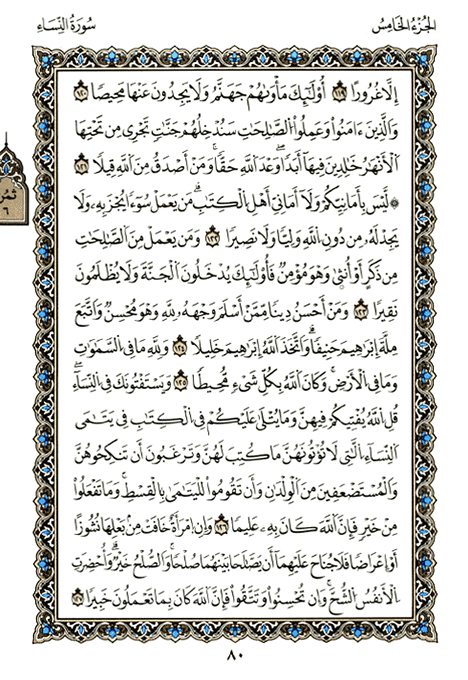 الجزء الخامس
سورة النساء
إِلَّا غُرُورًا ۝ أُولَٰئِكَ مَأْوَىٰهُمْ جَهَنَّمُ وَلَا يَجِدُونَ عَنْهَا مَحِيصًا ۝١٢١
وَالَّذِينَ ءَامَنُوا وَعَمِلُوا الصَّٰلِحَٰتِ سَنُدْخِلُهُمْ جَنَّٰتٍ تَجْرِى مِن تَحْتِهَا
الْأَنْهَٰرُ خَٰلِدِينَ فِيهَآ أَبَدًا ۖ وَعْدَ اللَّهِ حَقًّا ۚ وَمَنْ أَصْدَقُ مِنَ اللَّهِ قِيلًا ۝١٢٢
۞ لَّيْسَ بِأَمَانِيِّكُمْ وَلَآ أَمَانِىِّ أَهْلِ الْكِتَٰبِ ۗ مَن يَعْمَلْ سُوٓءًا يُجْزَ بِهِۦ وَلَا
يَجِدْ لَهُۥ مِن دُونِ اللَّهِ وَلِيًّا وَلَا نَصِيرًا ۝١٢٣ وَمَن يَعْمَلْ مِنَ الصَّٰلِحَٰتِ
مِن ذَكَرٍ أَوْ أُنثَىٰ وَهُوَ مُؤْمِنٌ فَأُولَٰئِكَ يَدْخُلُونَ الْجَنَّةَ وَلَا يُظْلَمُونَ
نَقِيرًا ۝١٢٤ وَمَنْ أَحْسَنُ دِينًا مِّمَّنْ أَسْلَمَ وَجْهَهُۥ لِلَّهِ وَهُوَ مُحْسِنٌ وَاتَّبَعَ
مِلَّةَ إِبْرَٰهِيمَ حَنِيفًا ۗ وَاتَّخَذَ اللَّهُ إِبْرَٰهِيمَ خَلِيلًا ۝ وَلِلَّهِ مَا فِى السَّمَٰوَٰتِ
وَمَا فِى الْأَرْضِ ۚ وَكَانَ اللَّهُ بِكُلِّ شَىْءٍ مُّحِيطًا ۝ وَيَسْتَفْتُونَكَ فِى النِّسَآءِ ۖ
قُلِ اللَّهُ يُفْتِيكُمْ فِيهِنَّ وَمَا يُتْلَىٰ عَلَيْكُمْ فِى الْكِتَٰبِ فِى يَتَٰمَى
النِّسَآءِ الَّٰتِى لَا تُؤْتُونَهُنَّ مَا كُتِبَ لَهُنَّ وَتَرْغَبُونَ أَن تَنكِحُوهُنَّ
وَالْمُسْتَضْعَفِينَ مِنَ الْوِلْدَٰنِ وَأَن تَقُومُوا لِلْيَتَٰمَىٰ بِالْقِسْطِ ۚ وَمَا تَفْعَلُوا
مِنْ خَيْرٍ فَإِنَّ اللَّهَ كَانَ بِهِۦ عَلِيمًا ۝ وَإِنِ امْرَأَةٌ خَافَتْ مِنۢ بَعْلِهَا نُشُوزًا
أَوْ إِعْرَاضًا فَلَا جُنَاحَ عَلَيْهِمَآ أَن يَصَّٰلَحَا بَيْنَهُمَا صُلْحًا ۚ وَالصُّلْحُ خَيْرٌ ۗ وَأُحْضِرَتِ
الْأَنفُسُ الشُّحَّ ۚ وَإِن تُحْسِنُوا وَتَتَّقُوا فَإِنَّ اللَّهَ كَانَ بِمَا تَعْمَلُونَ خَبِيرًا ۝
ثمن
٦
٨٠